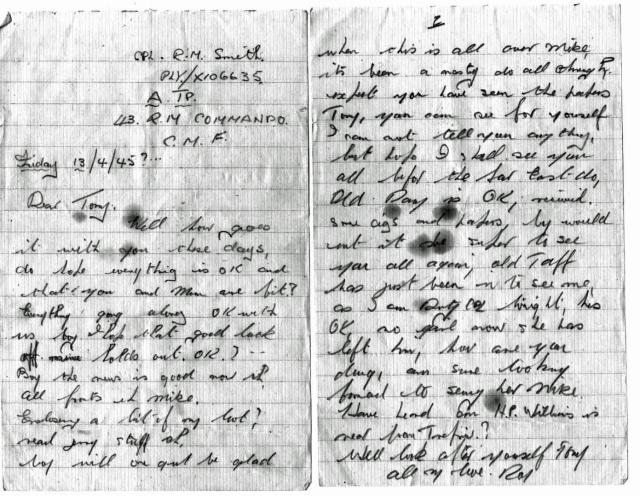 CPL. R.M. Smith.
PLY/X106635
A. TP.
43. R.M COMMANDO.
C. M. F.
Friday 13/4/45?...
Dear Tony.
Well how goes
it with you these days,
do hope everything is OK and
that you and Mum are fit?
Everything going along OK with
us, boy I hope that good luck
holds out. OK.? --
Boy the news is good now
all fronts eh mike.
Enclosing a bit of my loot?
stuff eh
boy will we be glad
2
when this is all over Mike,
its been a nasty do all through,
expect you have seen the papers
Tony, you can see for yourself
I can not tell you anything,
but hope I shall see you
all before the far East do,
Old is OK, received
some cigs and papers, by would
it be super to see
you all again, old Taff
has just been in to see me,
as I am tonight, his
OK, no girl now she has
left him, how are you
doing, am sure looking
forward to seing her Mike.
Have heard H.P. Withers is
near
Well look after yourself Tony
all my love. Roy